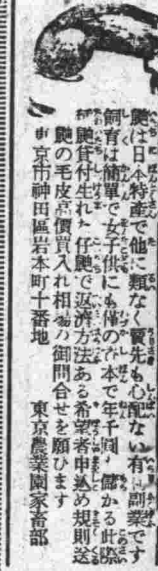 鼬は日本特産で他に類なく賣先も心配ない有利副業です
飼育は簡單で女子供にも僅の資本で年千圓も儲かる此際
種鼬貸付生れた仔鼬で返濟方法ある希望者申込め規則送
鼬の毛皮高價買入れ相場の御問合せを願ひます
東京市神田區岩本町十番地 東京農業園家畜部